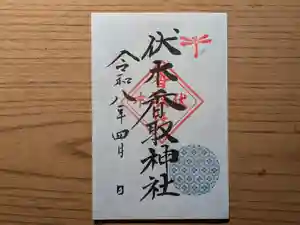 伏木香取神社
令和八年四月 日